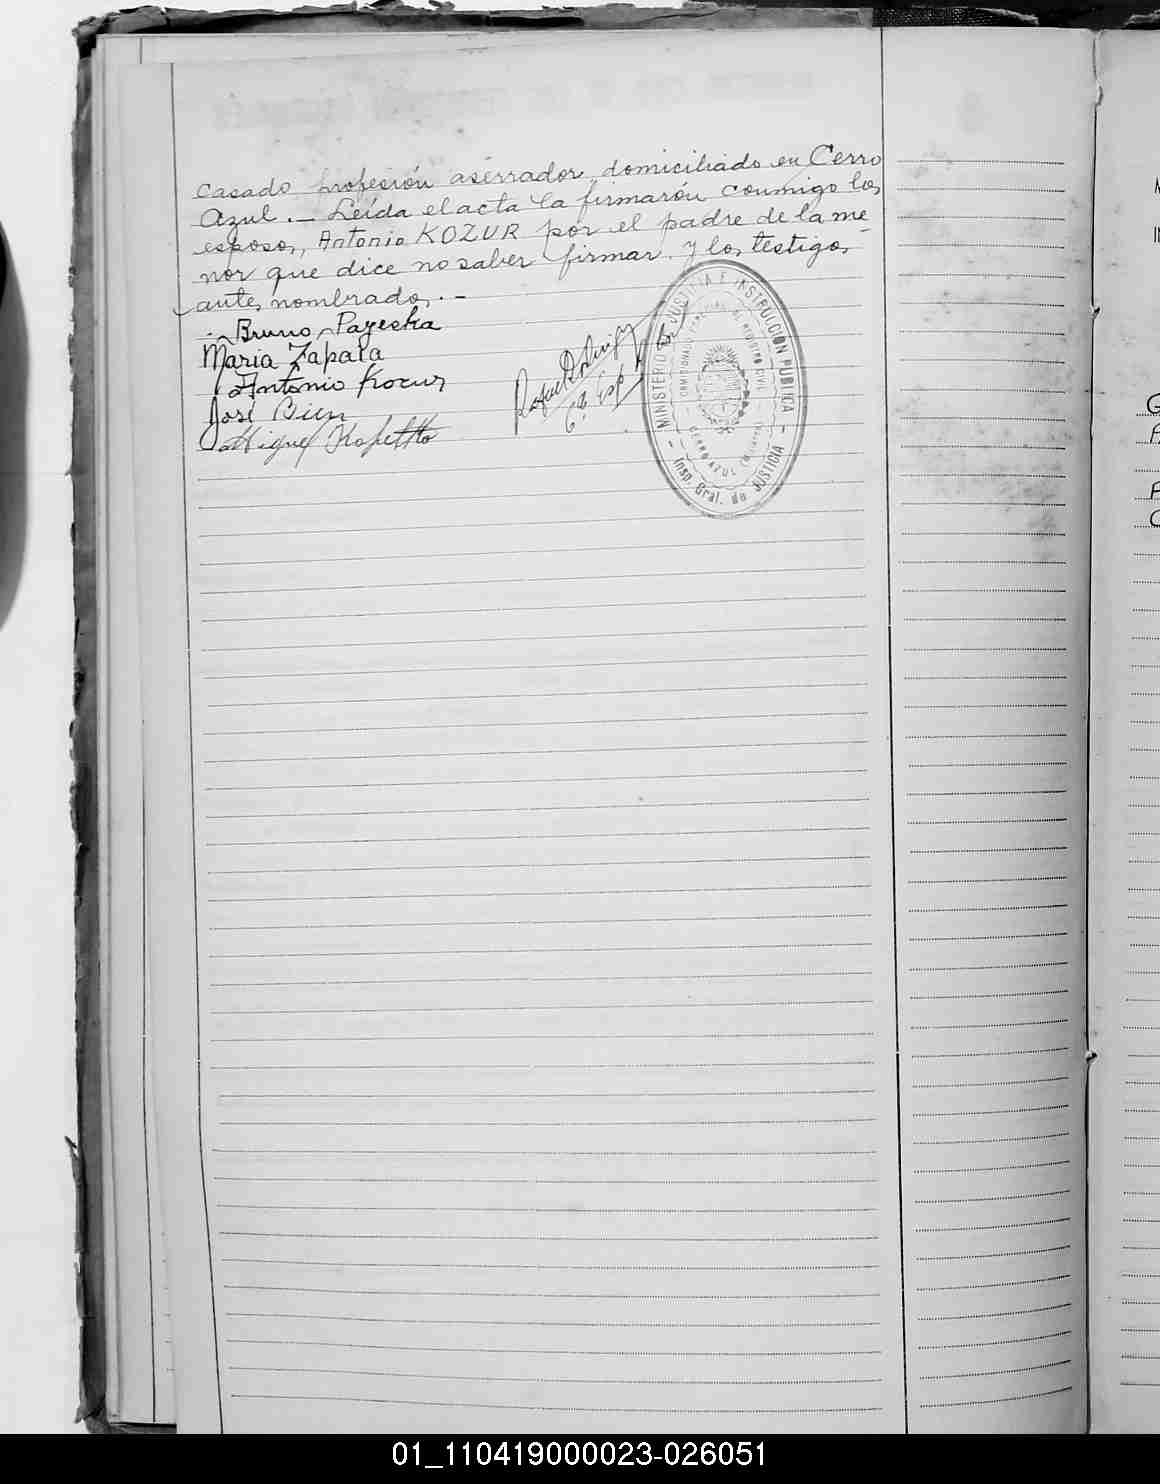 casado profesión aserrador domiciliado en Cerro
Azul. — Leída el acta la firmarón conmigo los
esposos, Antonio KOZUR por el padre de la me
nor que dice no saber firmar y los testigos
antes nombrados. —
Bruno Payeska
Maria Zapata
Antonio Kozur
José Bien
Miguel
MINISTERIO DE JUSTICIA E INSTRUCCION PUBLICA
REGISTRO CIVIL
CERRO AZUL
Insp. Gral. de JUSTICIA
01_110419000023-026051